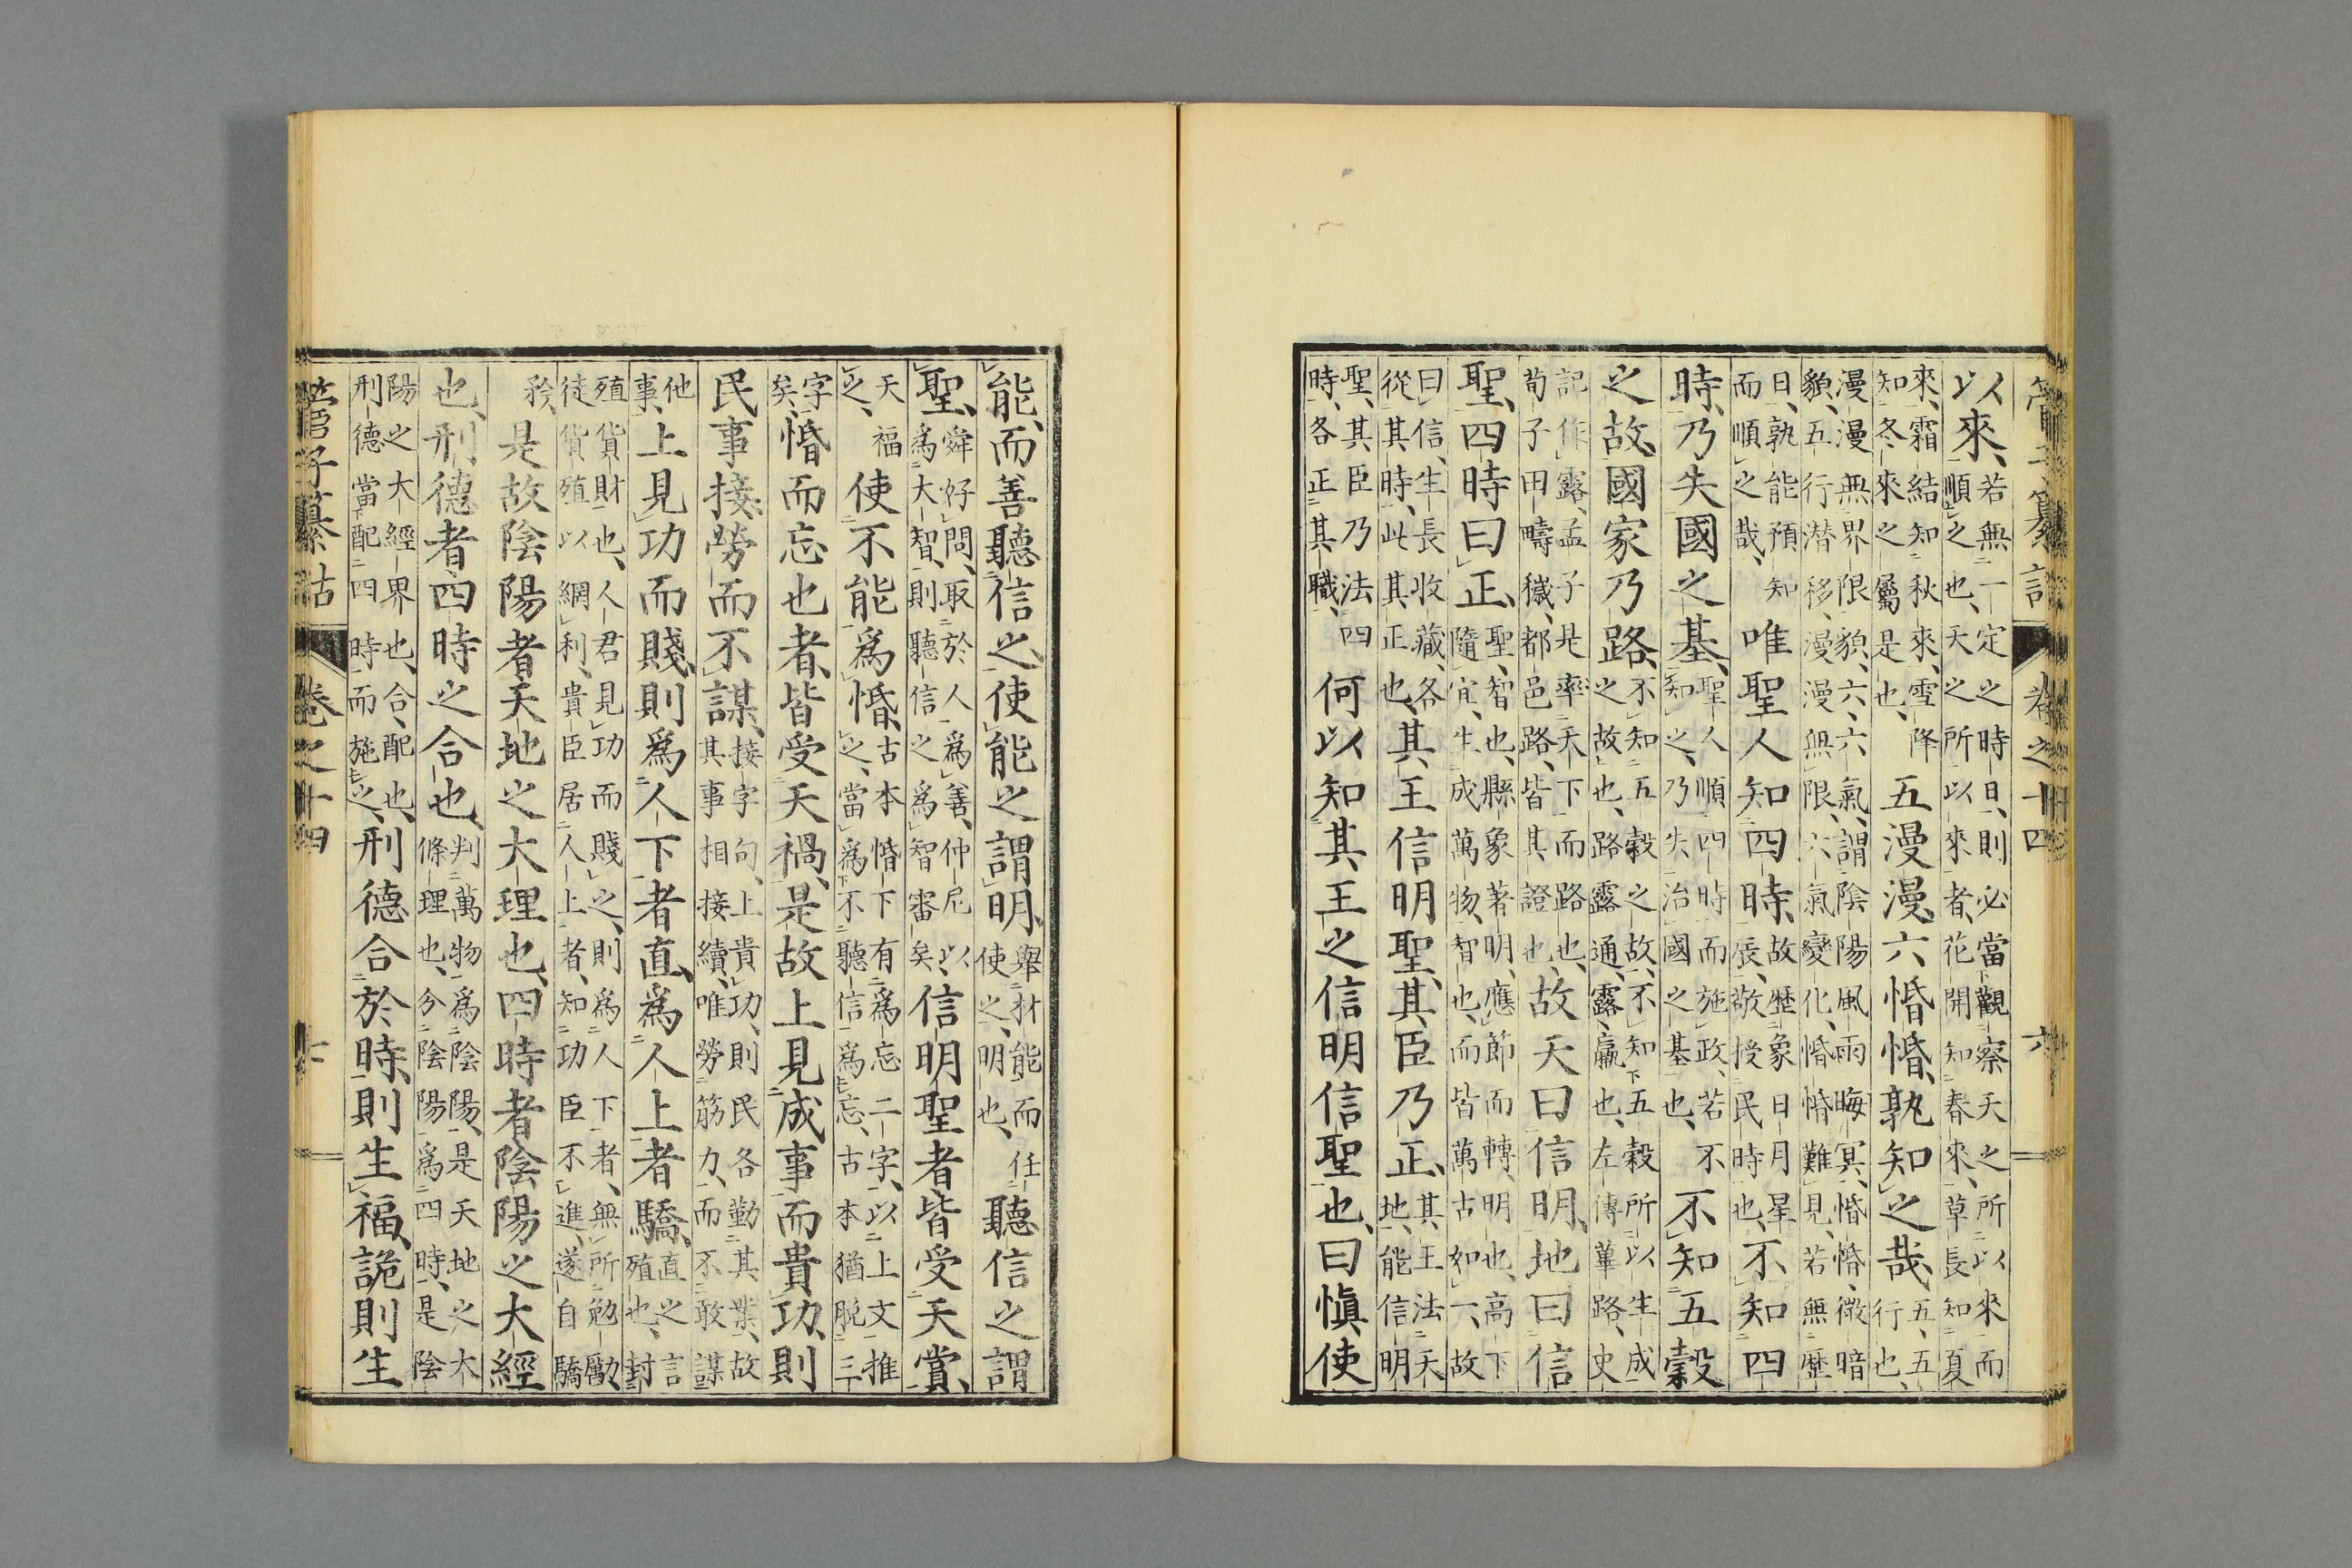 管子纂詁 卷之十四 六
以來、若無一定之時日、則必當觀察天之所以來而順之也、天之所以來者、花開知春來、草長知夏
來、霜結知秋來、雪降知冬來之屬是也、五漫漫、六惛惛、孰知之哉、五、五行也、
漫漫無界限貌、六、六氣、謂陰陽風雨晦冥、惛惛、微暗貌、五行潜移、漫漫無限、六氣變化、惛惛難見、若無歷
日、孰能預知而順之哉、唯聖人知四時、故歷象日月星辰、敬授民時也、不知四
時、乃失國之基、聖人順四時而施政、若不知之、乃失治國之基也、不知五穀
之故、國家乃路、不知五穀之故、不知五穀所以生成之故也、路露通、露、羸也、左傳蓽路、史
記作露、孟子是率天下而路也、荀子田疇穢、都邑路、皆其證也、故天曰信明、地曰信
聖、四時曰正、聖、智也、縣象著明、應節而轉、明也、高下隨宜、生成萬物、智也、而皆萬古如一、故
曰信、生長收藏、各從其時、此其正也、其王信明聖、其臣乃正、其王法天地、能信明
聖、其臣乃法四時、各正其職、何以知其王之信明信聖也、曰愼使
能、而善聽信之、使能之謂明、擧材能而任使之、明也、聽信之謂
聖、舜好問、取於人爲善、仲尼以爲大智、則聽信之爲智審矣、信明聖者、皆受天賞、
天福之、使不能爲惛、古本惛下有爲忘二字、以上文推之、當爲不聽信爲忘、古本猶脫三
字矣、惛而忘也者、皆受天禍、是故上見成事而貴功、則
民事接、勞而不謀、接字句、上貴功、則民各勤其業、故其事相接續、唯勞筋力、而不敢謀
他事、上見功而賤、則爲人下者直、爲人上者驕、直之言殖也、封
殖貨財也、人君見功而賤之、則爲人下者、無所勉勵、徒貨殖以網利、貴臣居人上者、知功臣不進、遂自驕
矜、是故陰陽者、天地之大理也、四時者、陰陽之大經
也、刑德者、四時之合也、判萬物爲陰陽、是天地之大條理也、分陰陽爲四時、是陰
陽之大經界也、合、配也、刑德當配四時而施之、刑德合於時、則生福、詭則生
管子纂詁 卷之十四 七